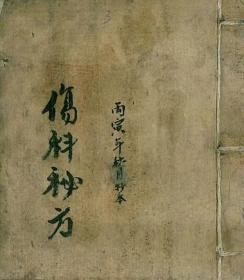 丙寅年秋月抄本
傷科秘方